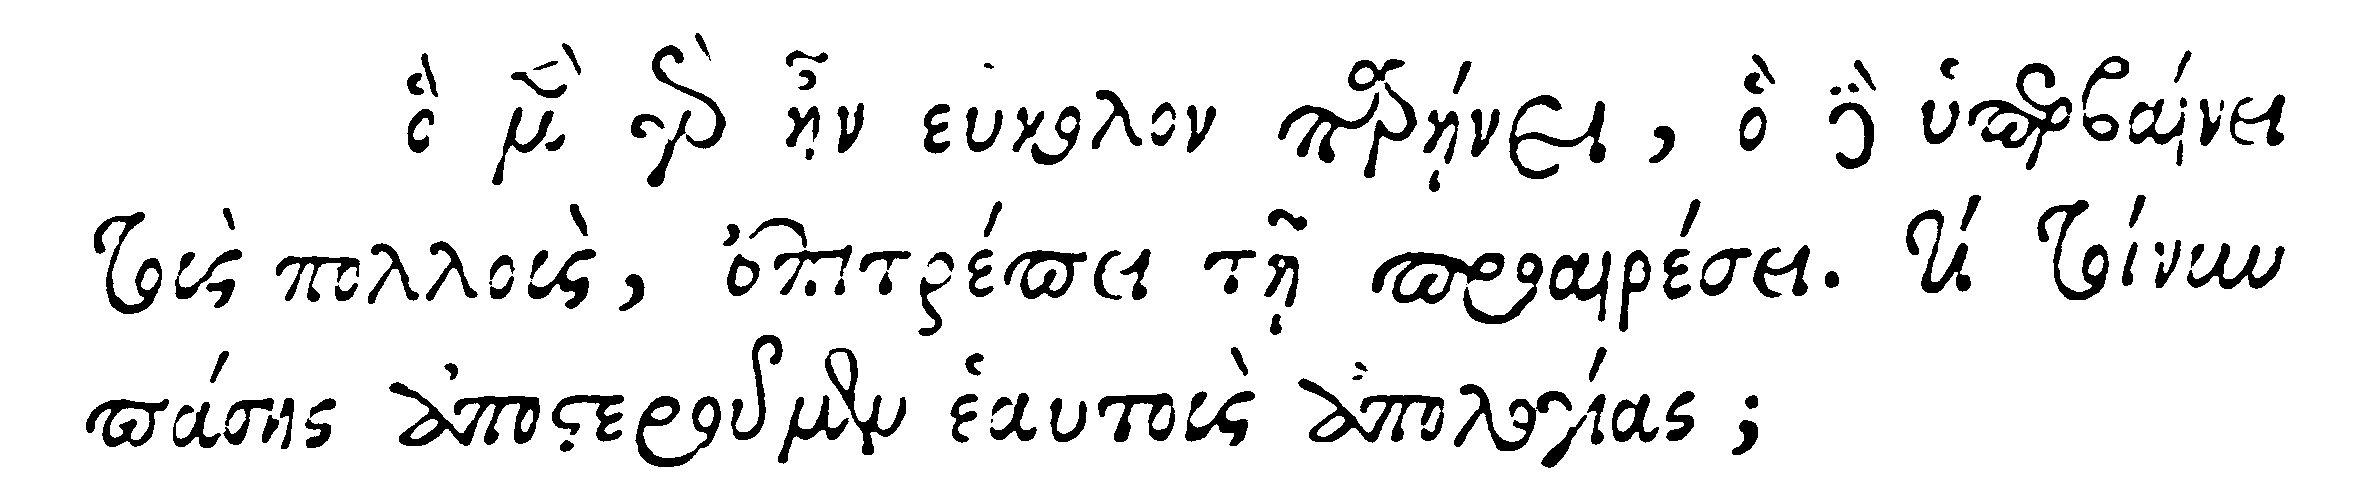 ὃ μὲν γὰρ ἦν εὔκολον παρῄνει, ὃ δὲ ὑπερβαίνει
τοὺς πολλοὺς, ἐπιτρέπει τῇ προαιρέσει. τί τοίνυν
πάσης ἀποστεροῦμεν ἑαυτοὺς ἀπολογίας;